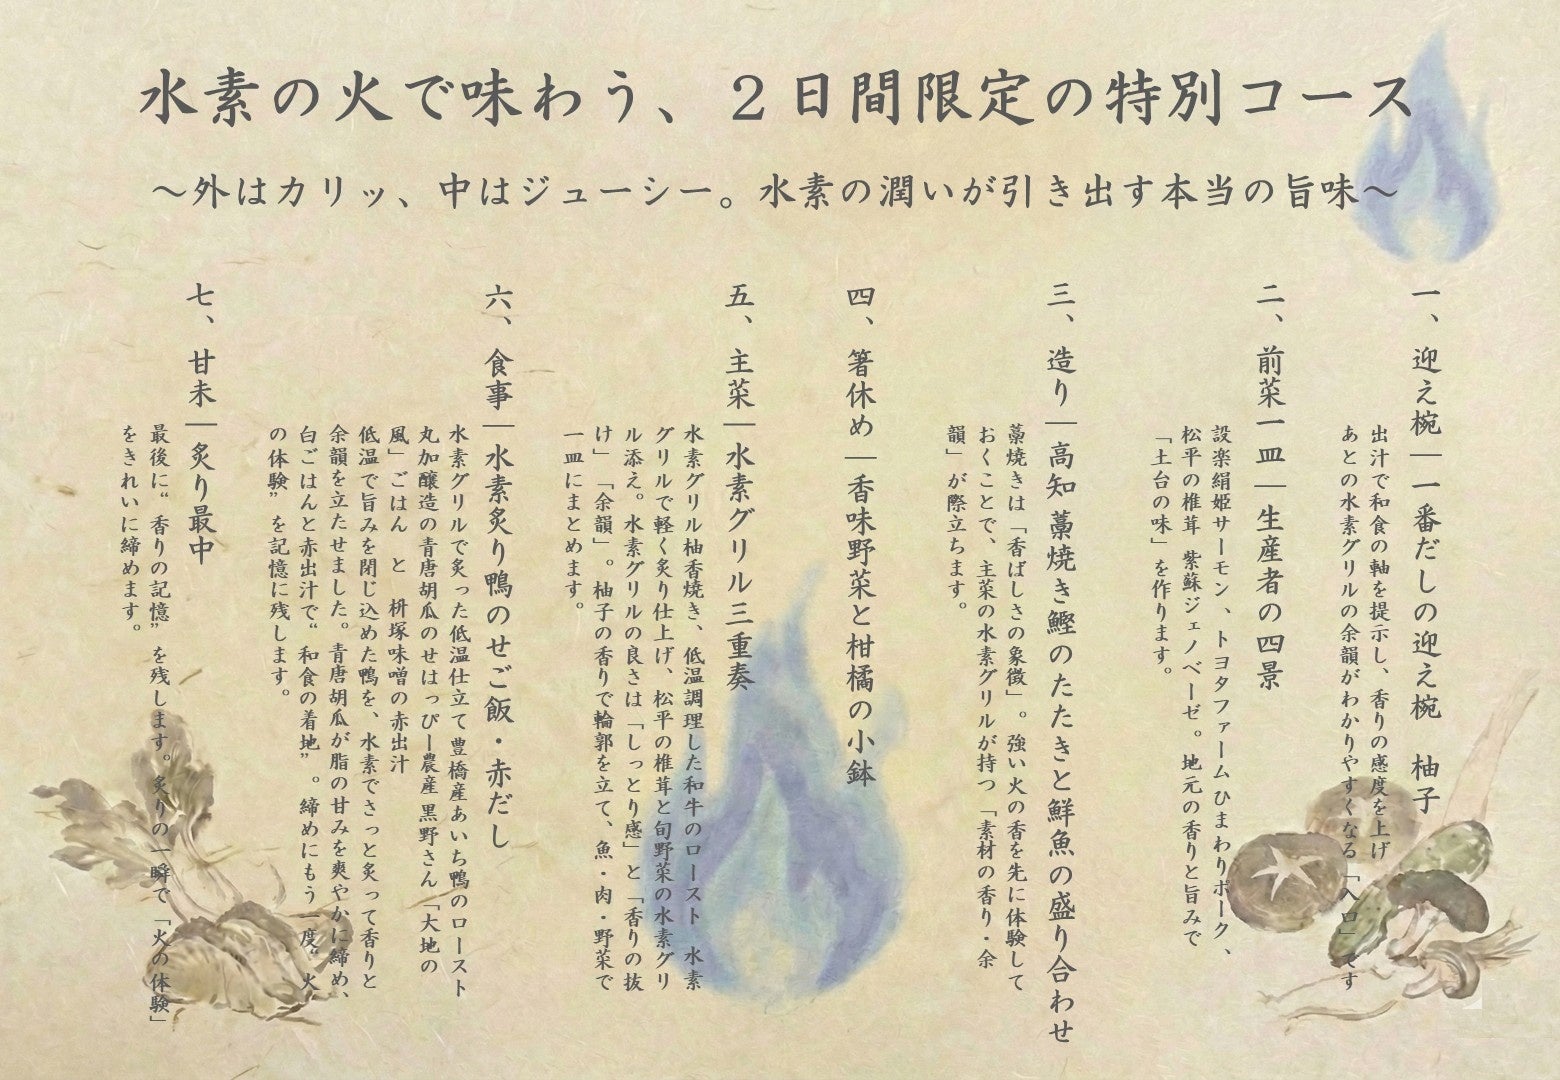 水素の火で味わう、２日間限定の特別コース
～外はカリッ、中はジューシー。水素の潤いが引き出す本当の旨味～
一、迎え椀｜一番だしの迎え椀　柚子
出汁で和食の軸を提示し、香りの感度を上げ
あとの水素グリルの余韻がわかりやすくなる「へロ」です
二、前菜一皿｜生産者の四景
設楽絹姫サーモン、トヨタファームひまわりポーク、
松平の椎茸 紫蘇ジェノベーゼ。地元の香りと旨みで
「土台の味」を作ります。
三、造り｜高知 藁焼き鰹のたたきと鮮魚の盛り合わせ
藁焼きは「香ばしさの象徴」。強い火の香を先に体験して
おくことで、主菜の水素グリルが持つ「素材の香り・余
韻」が際立ちます。
四、箸休め｜香味野菜と柑橘の小鉢
五、主菜｜水素グリル三重奏
水素グリル柚香焼き、低温調理した和牛のロースト　水素
グリルで軽く炙り仕上げ、松平の椎茸と旬野菜の水素グリ
ル添え。水素グリルの良さは「しっとり感」と「香りの抜
け」「余韻」。柚子の香りで輪郭を立て、魚・肉・野菜で
一皿にまとめます。
六、食事｜水素炙り鴨のせご飯・赤だし
水素グリルで炙った低温仕立て豊橋産あいち鴨のロースト
丸加醸造の青唐胡瓜のせはっぴー農産 黒野さん「大地の
風」ごはん　と　枡塚味噌の赤出汁
低温で旨みを閉じ込めた鴨を、水素でさっと炙って香りと
余韻を立たせました。青唐胡瓜が脂の甘みを爽やかに締め、
白ごはんと赤出汁で“和食の着地”。締めにもう一度“火
の体験”を記憶に残します。
七、甘未｜炙り最中
最後に“香りの記憶”を残します。炙りの一瞬で「火の体験」
をきれいに締めます。